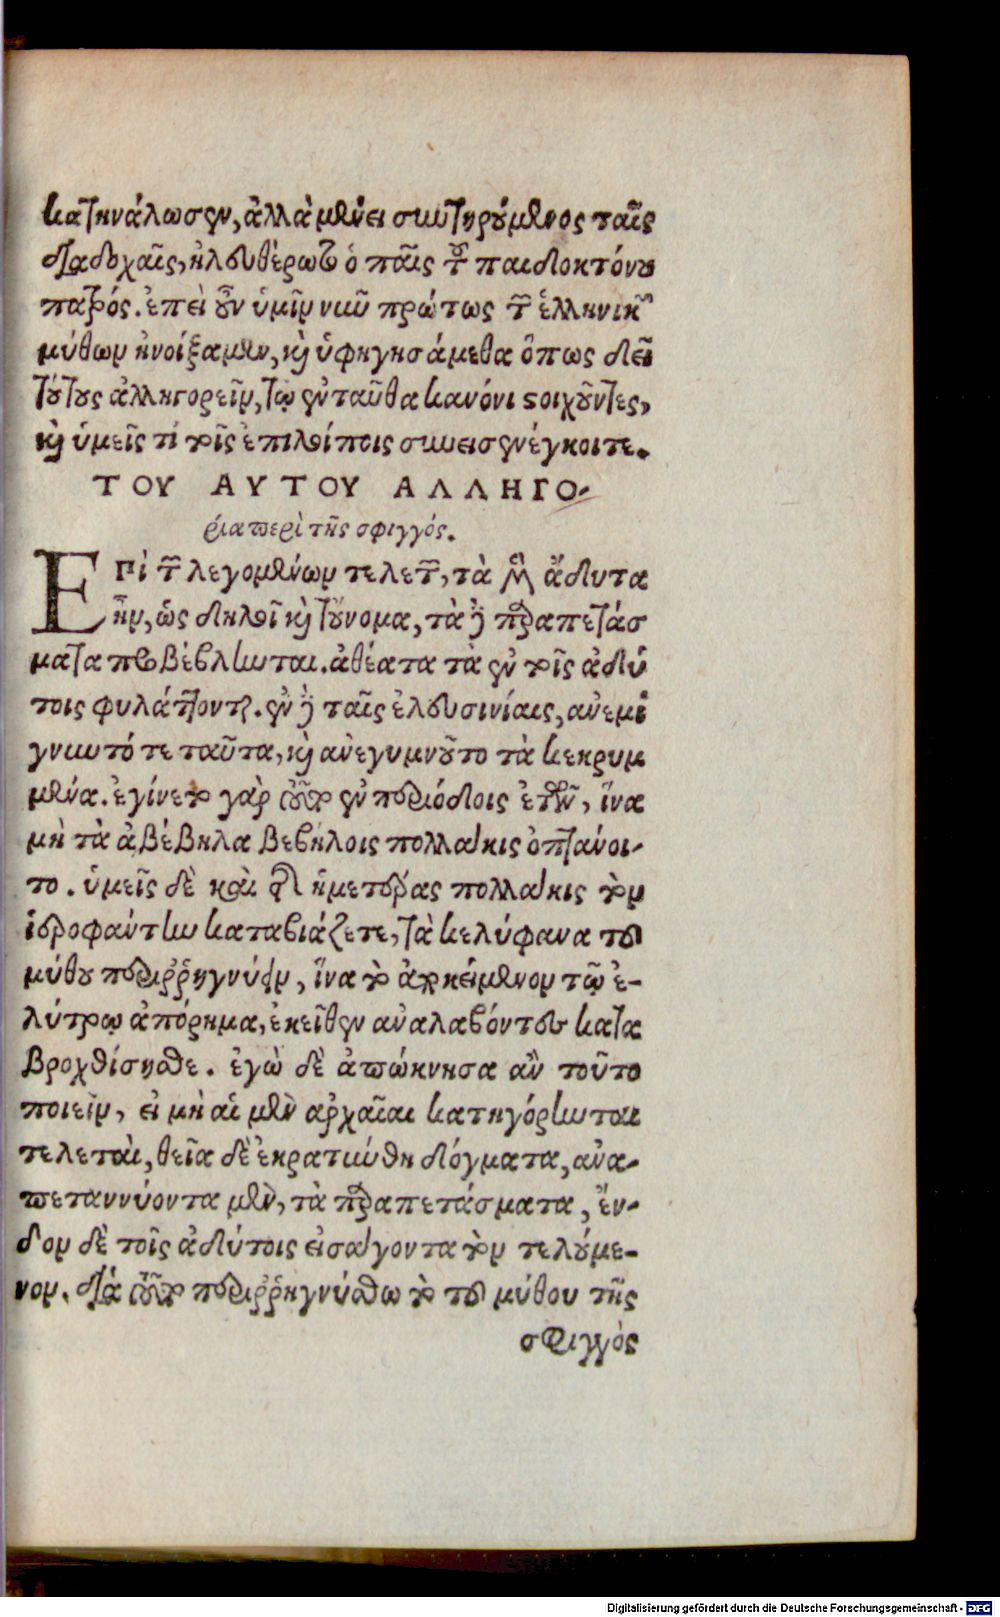 κατηνάλωσεν, ἀλλὰ μένει συντηρούμενος ταῖς
διαδοχαῖς, ἠλευθέρωτο ὁ παῖς τοῦ παιδοκτόνου
πατρός. ἐπεὶ οὖν ὑμῖν νῦν πρώτως τῶν ἑλληνικῶν
μύθων ἠνοίξαμεν, καὶ ὑφηγησάμεθα ὅπως δεῖ
τούτους ἀλληγορεῖν, τῷ ἐνταῦθα κανόνι στοιχοῦντες,
καὶ ὑμεῖς τί τοῖς ἐπιλοίποις συνεισενέγκοιτε.
ΤΟΥ ΑΥΤΟΥ ΑΛΛΗΓΟ-
ρία περὶ τῆς σφιγγός.
ΕΠὶ τῶν λεγομένων τελετῶν, τὰ μὲν ἄδυτα
ἦν, ὡς δηλοῖ καὶ τοὔνομα, τὰ δὲ παραπετάσ
ματα προβέβληνται. ἀθέατα τὰ ἐν τοῖς ἀδύ
τοις φυλάττοντα. ἐν δὲ ταῖς ἐλευσινίαις, ἀνεμί
γνυντό τε ταῦτα, καὶ ἀνεγυμνοῦτο τὰ κεκρυμ
μένα. ἐγίνετο γὰρ τοῦτο ἐν περιόδοις ἐτῶν, ἵνα
μὴ τὰ ἀβέβηλα βεβήλοις πολλάκις ὀπτάνοι-
το. ὑμεῖς δὲ καὶ τῆς ἡμετέρας πολλάκις τὸν
ἱεροφάντην καταβιάζετε, τὰ κελύφανα τοῦ
μύθου περιῤῥηγνύειν, ἵνα τὸ ἀποκείμενον τῷ ἐ-
λύτρῳ ἀπόρημα, ἐκεῖθεν ἀναλαβόντες κατα
βροχθίσησθε. ἐγὼ δὲ ἀπώκνησα ἂν τοῦτο
ποιεῖν, εἰ μὴ αἱ μὲν ἀρχαῖαι κατηγόρηνται
τελεταὶ, θεῖα δὲ ἐκρατύνθη δόγματα, ἀνα-
πεταννύοντα μὲν, τὰ παραπετάσματα, ἔν-
δον δὲ τοῖς ἀδύτοις εἰσάγοντα τὸν τελούμε-
νον. διὰ τοῦτο περιῤῥηγνύσθω τὸ τοῦ μύθου τῆς
σφιγγὸς
Digitalisierung gefördert durch die Deutsche Forschungsgemeinschaft - DFG